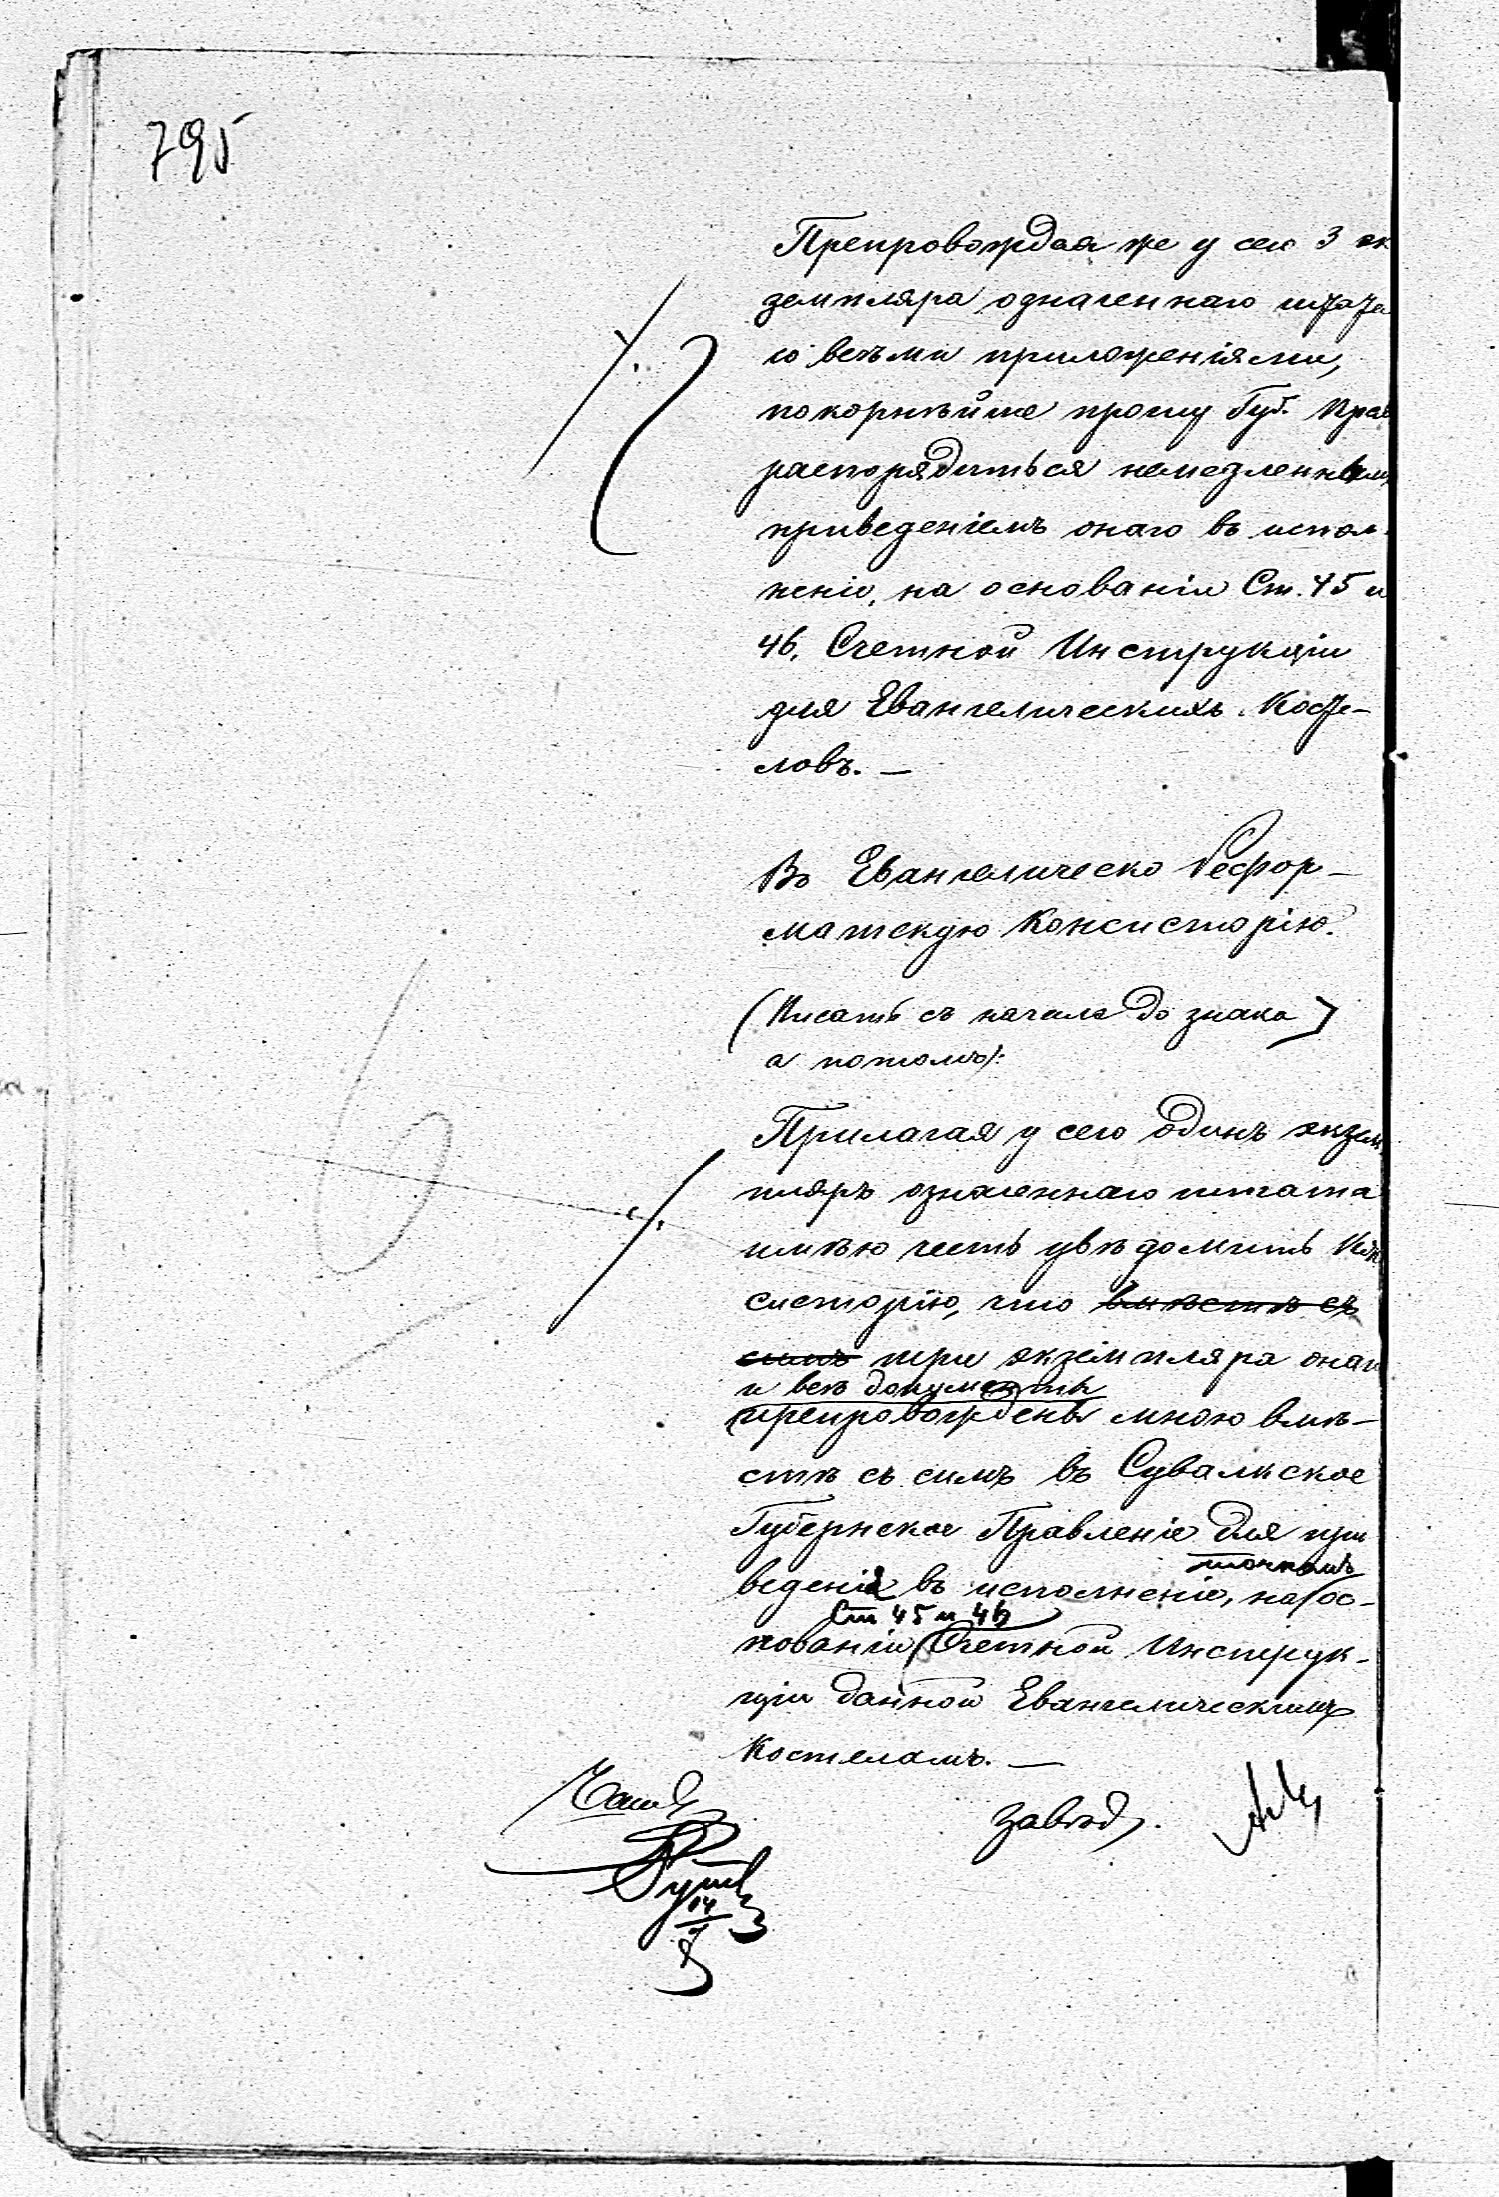 795
Препровождая же у сего 3 эк
земпляра означеннаго штата
со всѣми приложеніями,
покорнѣйше прошу Губ. Прав
распорядиться немедленнымъ
приведеніемъ онаго въ испол-
неніе, на основаніи Ст. 45 и
46. Счетной Инструкціи
для Евангелическихъ Косте-
ловъ. —
Въ Евангелическо Рефор-
матскую Консисторію.
(Писать съ начала до знака)
а потомъ:
Прилагая у сего одинъ экзем
пляръ означеннаго штата
имѣю честь увѣдомить Кон
систорію, что вмѣстѣ съ
симъ три экземпляра онаго
и всѣ документы
препровождены мною вмѣ-
стѣ съ симъ въ Сувалкское
Губернское Правленіе для при
веденія въ исполненіе, на точномъ ос-
нованіи Ст 45 и 46 Счетной Инструк-
ціи данной Евангелическимъ
Костеламъ. —
Завѣд.
14